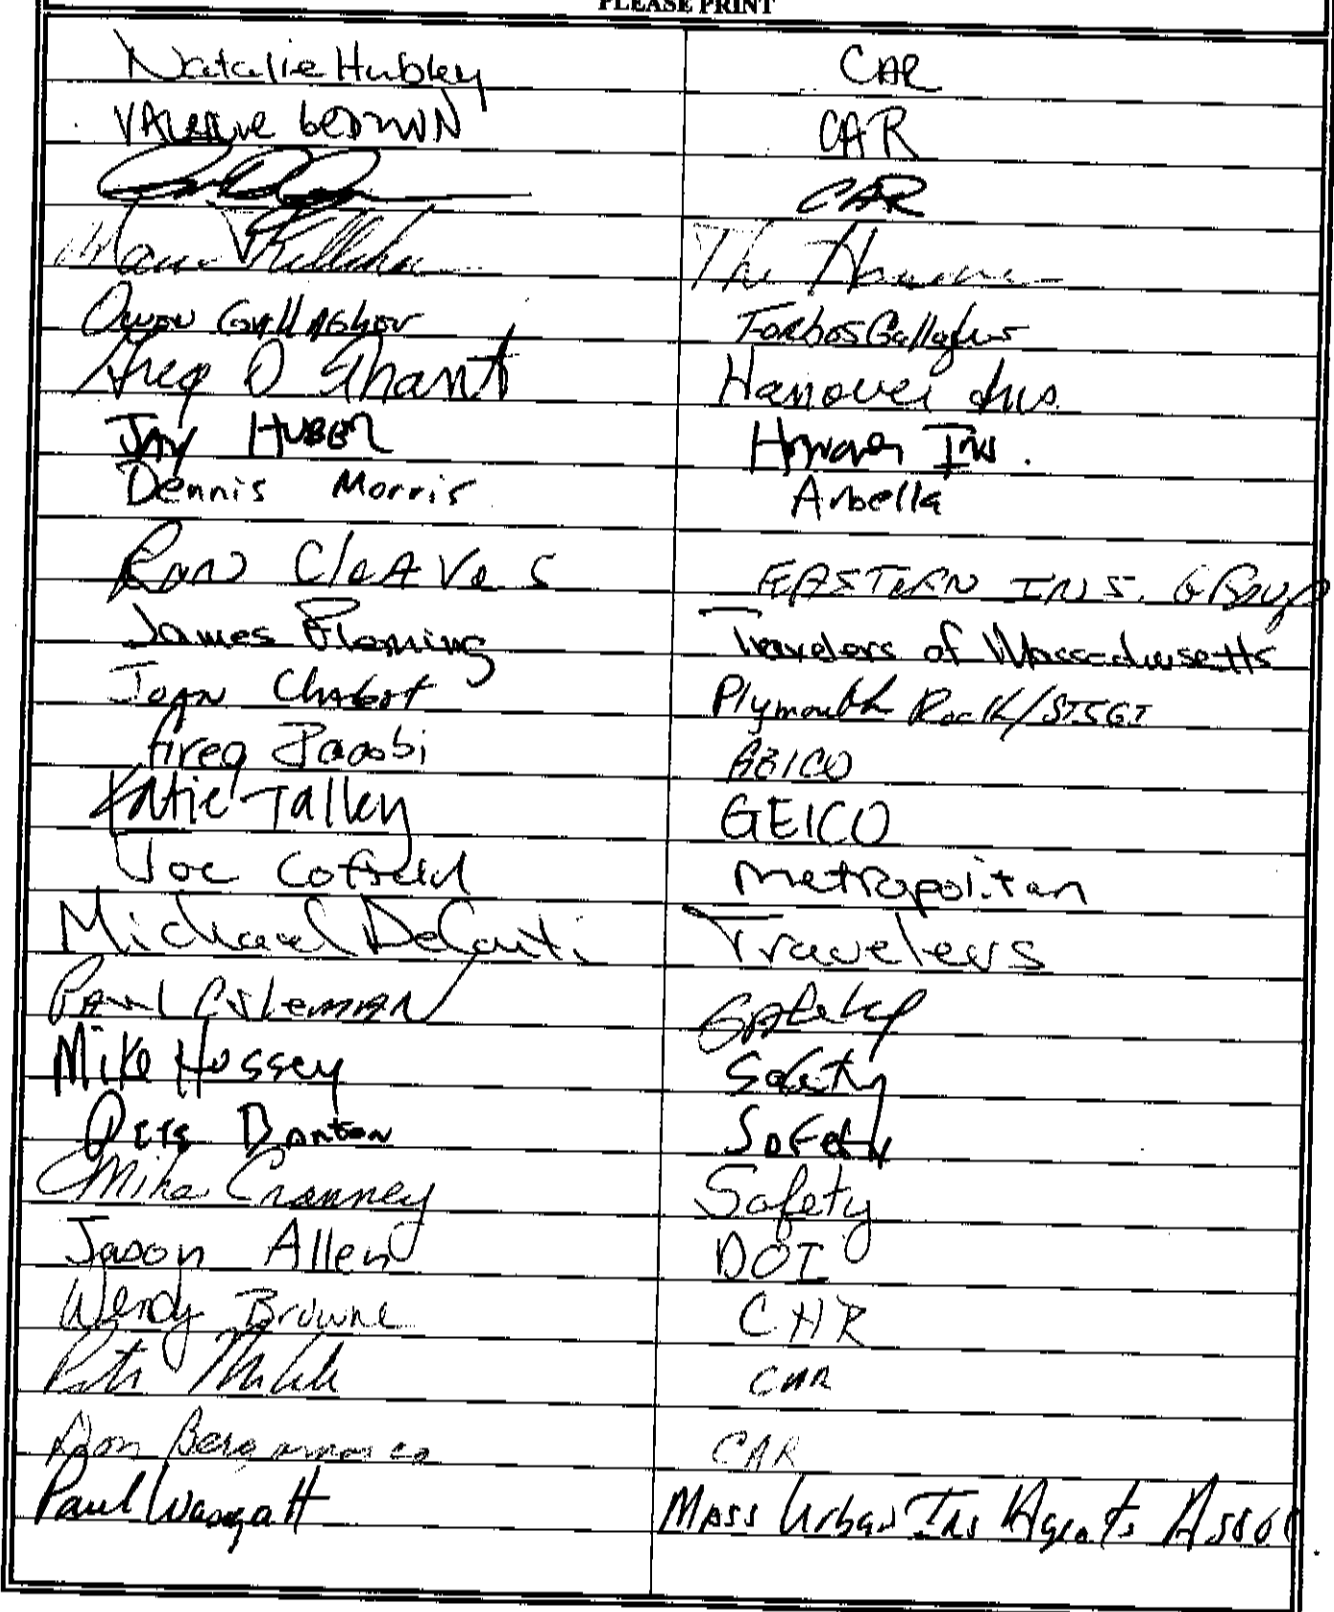 PLEASE PRINT
Natalie Hubley CAR
VALERIE CAR
CAR
The Hanover
Owen GAllAgher Forbes Gallagher
Greg D Hanover Ins.
JAY HUBER Hanover Ins.
Dennis Morris Arbella
Ron CleAVes EASTERN INS. GROUP
James Fleming Travelers of Massachusetts
JoAN Chabot Plymouth Rock/
Greg Jacobi ABICO
Katie Talley GEICO
Joe Cofield Metropolitan
Michael DeConti Travelers
PAUL COLemAN Safety
Mike Hussey Safety
Safety
Mike Cranney Safety
Jason Allen DOI
Wendy Browne CAR
CAR
Bergamasco CAR
Paul Wasgatt MASS Urban Ins Agents Assoc.